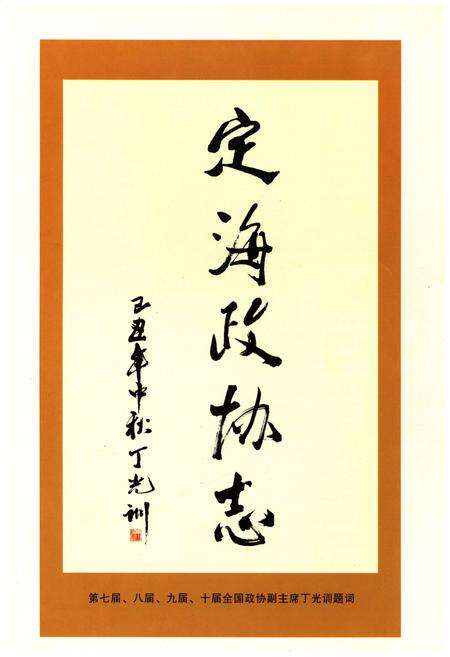 定海政协志
己丑年中秋丁光训
第七届、八届、九届、十届全国政协副主席丁光训题词